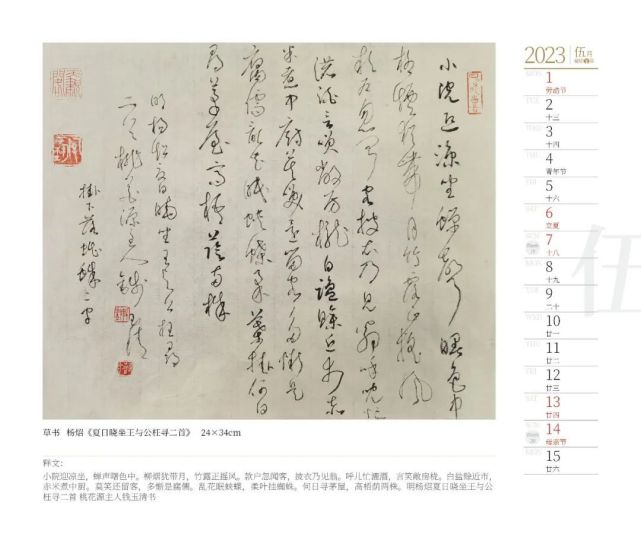 小院迎凉坐蝉声曙色中
柳烟犹带月竹露正摇风
款户忽闻客披衣乃见翁呼儿忙
漉酒言笑敞房栊白盐赊近市赤
米煮中厨莫笑还留客多惭是
腐儒乱花眠蛱蝶柔叶挂何日
寻茅屋高梧荫两株
明杨炤夏日晓坐王与公枉寻
二首桃花源主人钱玉清
挂下落蜘蛛二字
草书 杨炤《夏日晓坐王与公枉寻二首》 24×34cm
释文：
小院迎凉坐，蝉声曙色中。柳烟犹带月，竹露正摇风。款户忽闻客，披衣乃见翁。呼儿忙漉酒，言笑敞房栊。白盐赊近市，
赤米煮中厨。莫笑还留客，多惭是腐儒。乱花眠蛱蝶，柔叶挂蜘蛛。何日寻茅屋，高梧荫两株。明杨炤夏日晓坐王与公
枉寻二首 桃花源主人钱玉清书
2023 伍月
伍
MON 1 劳动节
TUE 2 十三
WED 3 十四
THU 4 青年节
FRI 5 十六
SAT 6 立夏
SUN 7 十八
MON 8 十九
TUE 9 二十
WED 10 廿一
THU 11 廿二
FRI 12 廿三
SAT 13 廿四
SUN 14 母亲节
MON 15 廿六